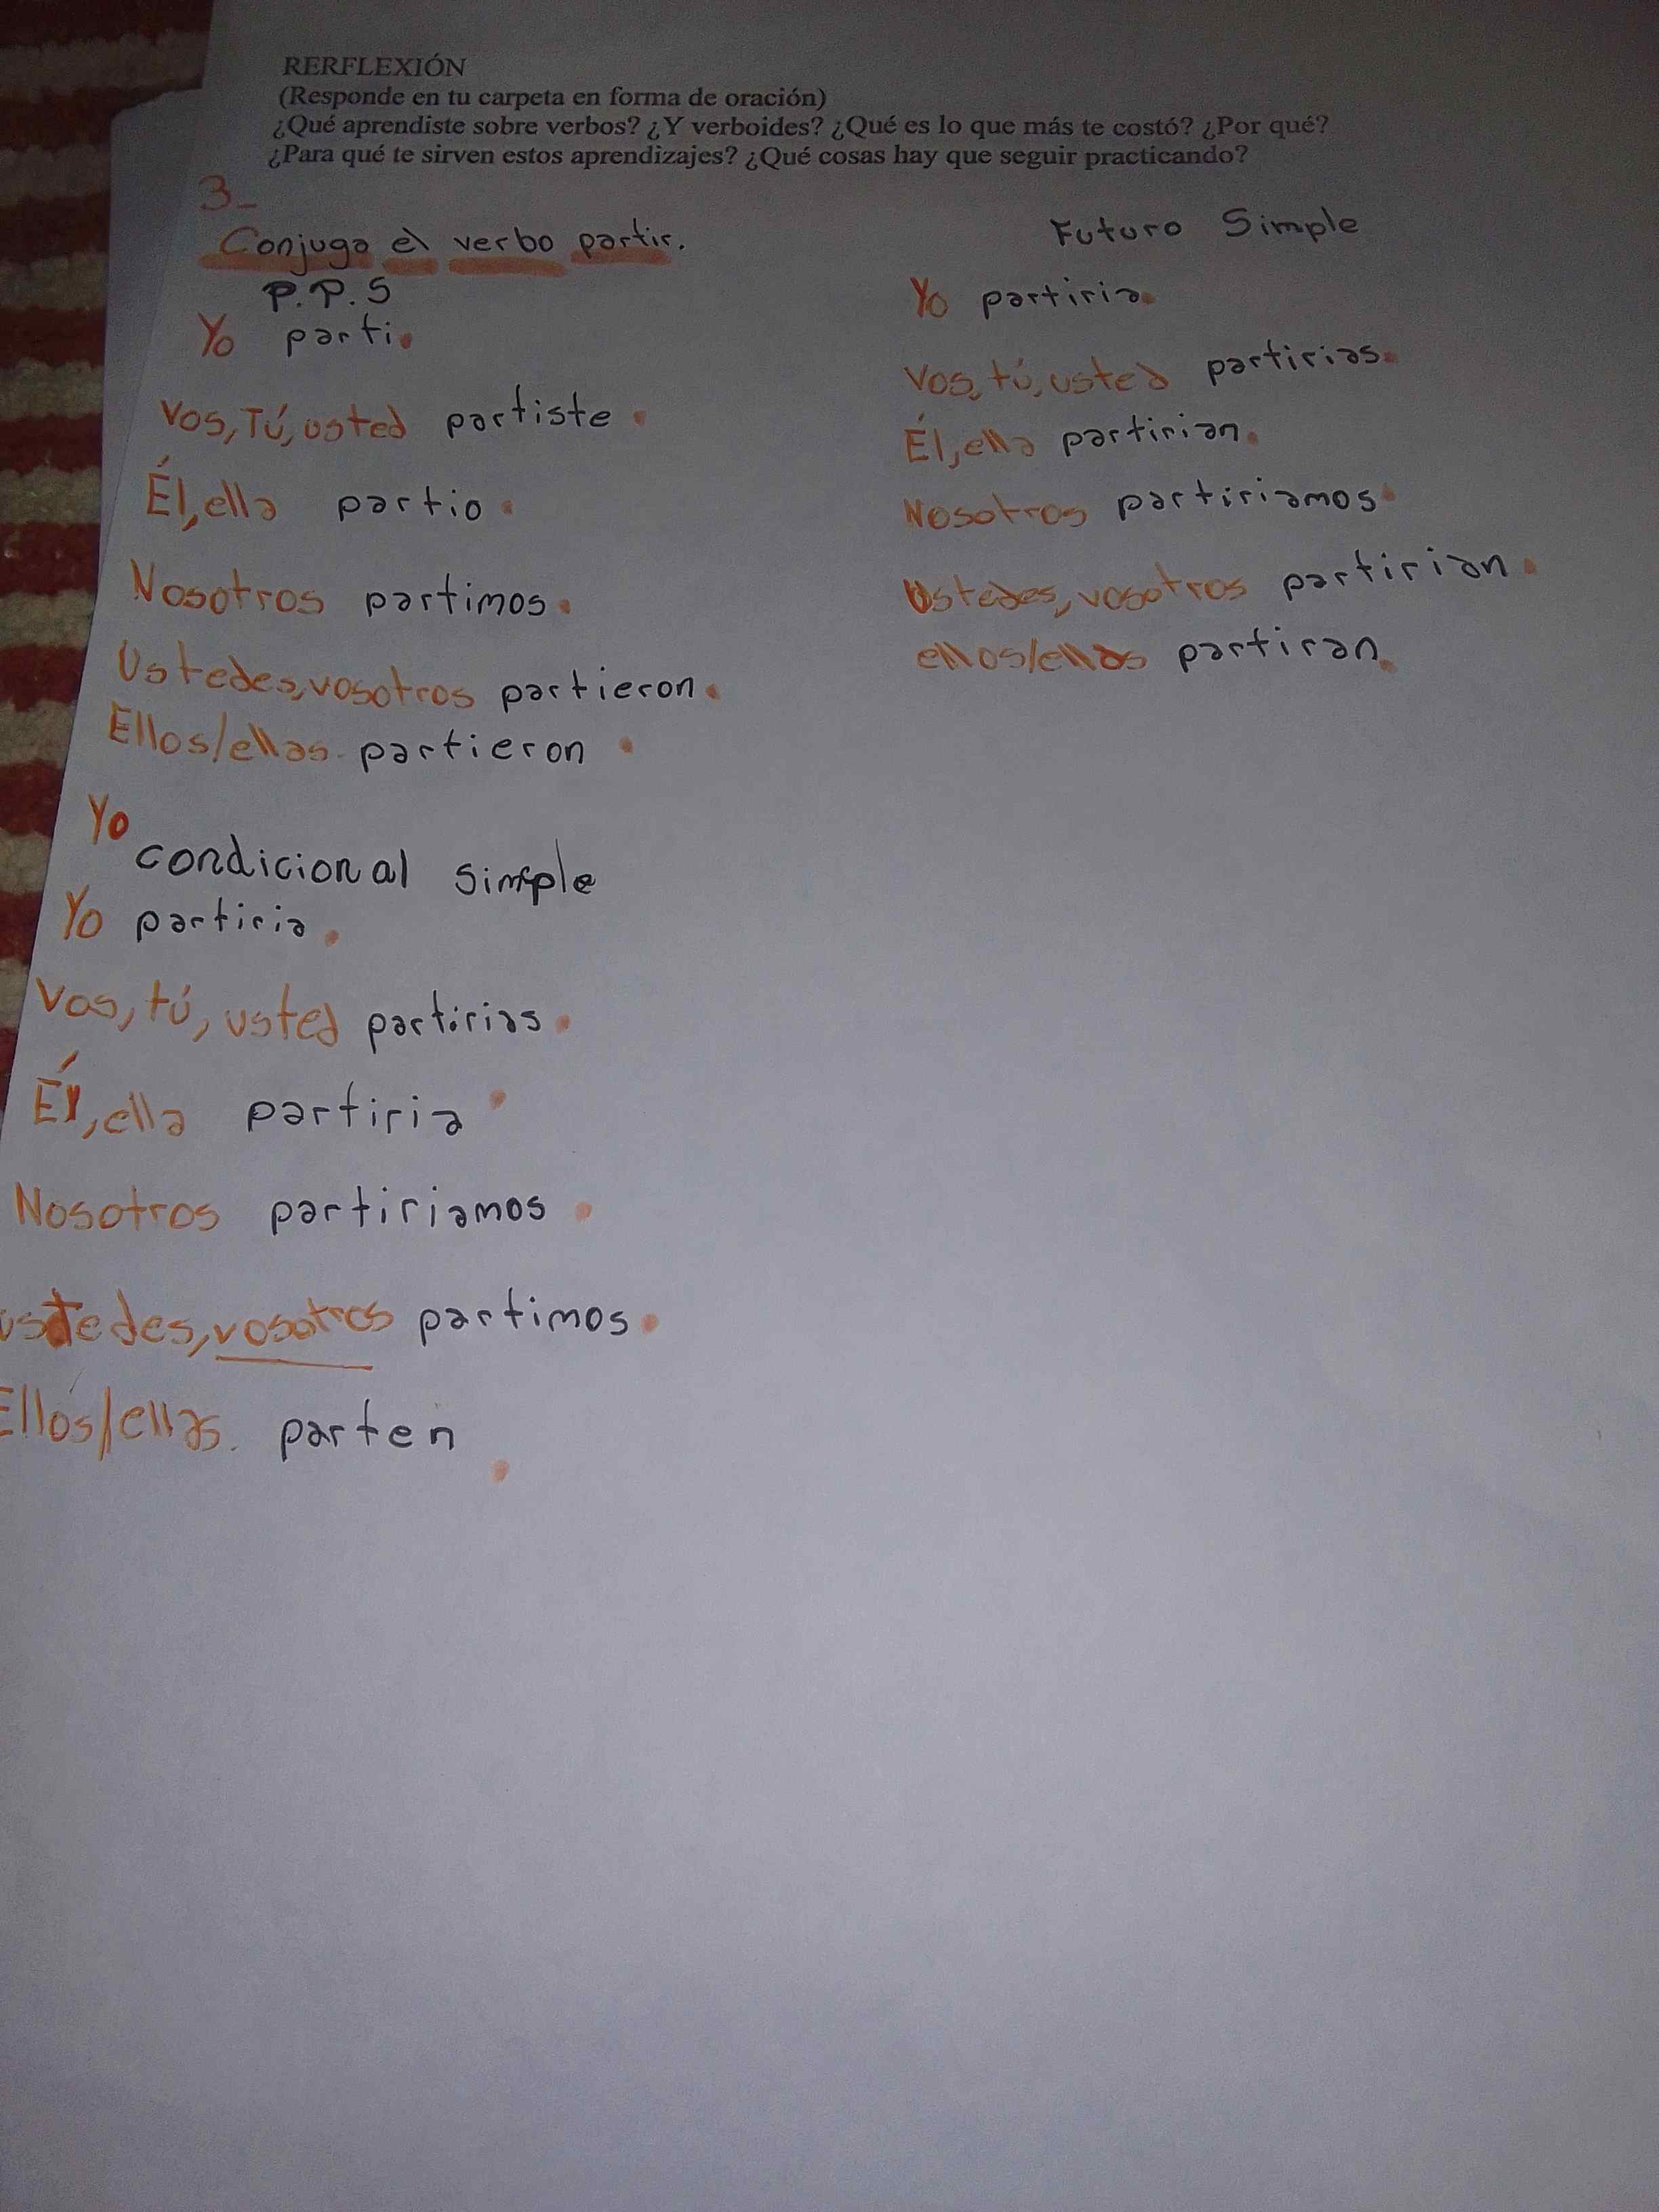 RERFLEXIÓN
(Responde en tu carpeta en forma de oración)
¿Qué aprendiste sobre verbos? ¿Y verboides? ¿Qué es lo que más te costó? ¿Por qué?
¿Para qué te sirven estos aprendizajes? ¿Qué cosas hay que seguir practicando?
3_
Conjuga el verbo partir.
P.P.S
Yo parti.
Vos, Tú, usted partiste.
Él, ella partio.
Nosotros partimos.
Ustedes, vosotros partieron.
Ellos/ellas partieron.
Yo
condicional simple
Yo partiria.
Vos, tú, usted partirias.
Él, ella partiria.
Nosotros partiriamos.
ustedes, vosotros partimos.
Ellos/ellas. parten.
Futuro Simple
Yo partiria.
Vos, tú, usted partirias.
Él, ella partirian.
Nosotros partiriamos.
Ustedes, vosotros partirian.
ellos/ellas partiran.